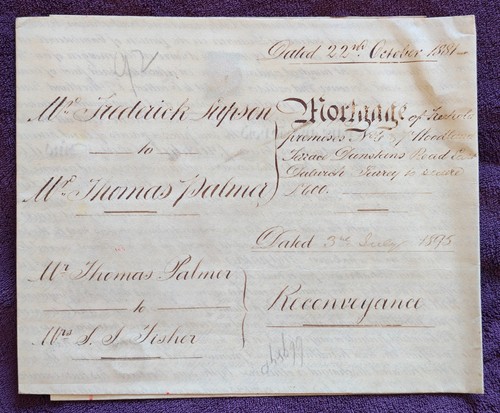 92
Dated 22nd October 1881
Mr Frederick Jupson
to
Mr Thomas Palmer
Mortgage of Freehold
premises No
Terrace Road
Dulwich Surrey to secure
£600.
Dated 3rd July 1895
Mr Thomas Palmer
to
Mrs S. J. Fisher
Reconveyance